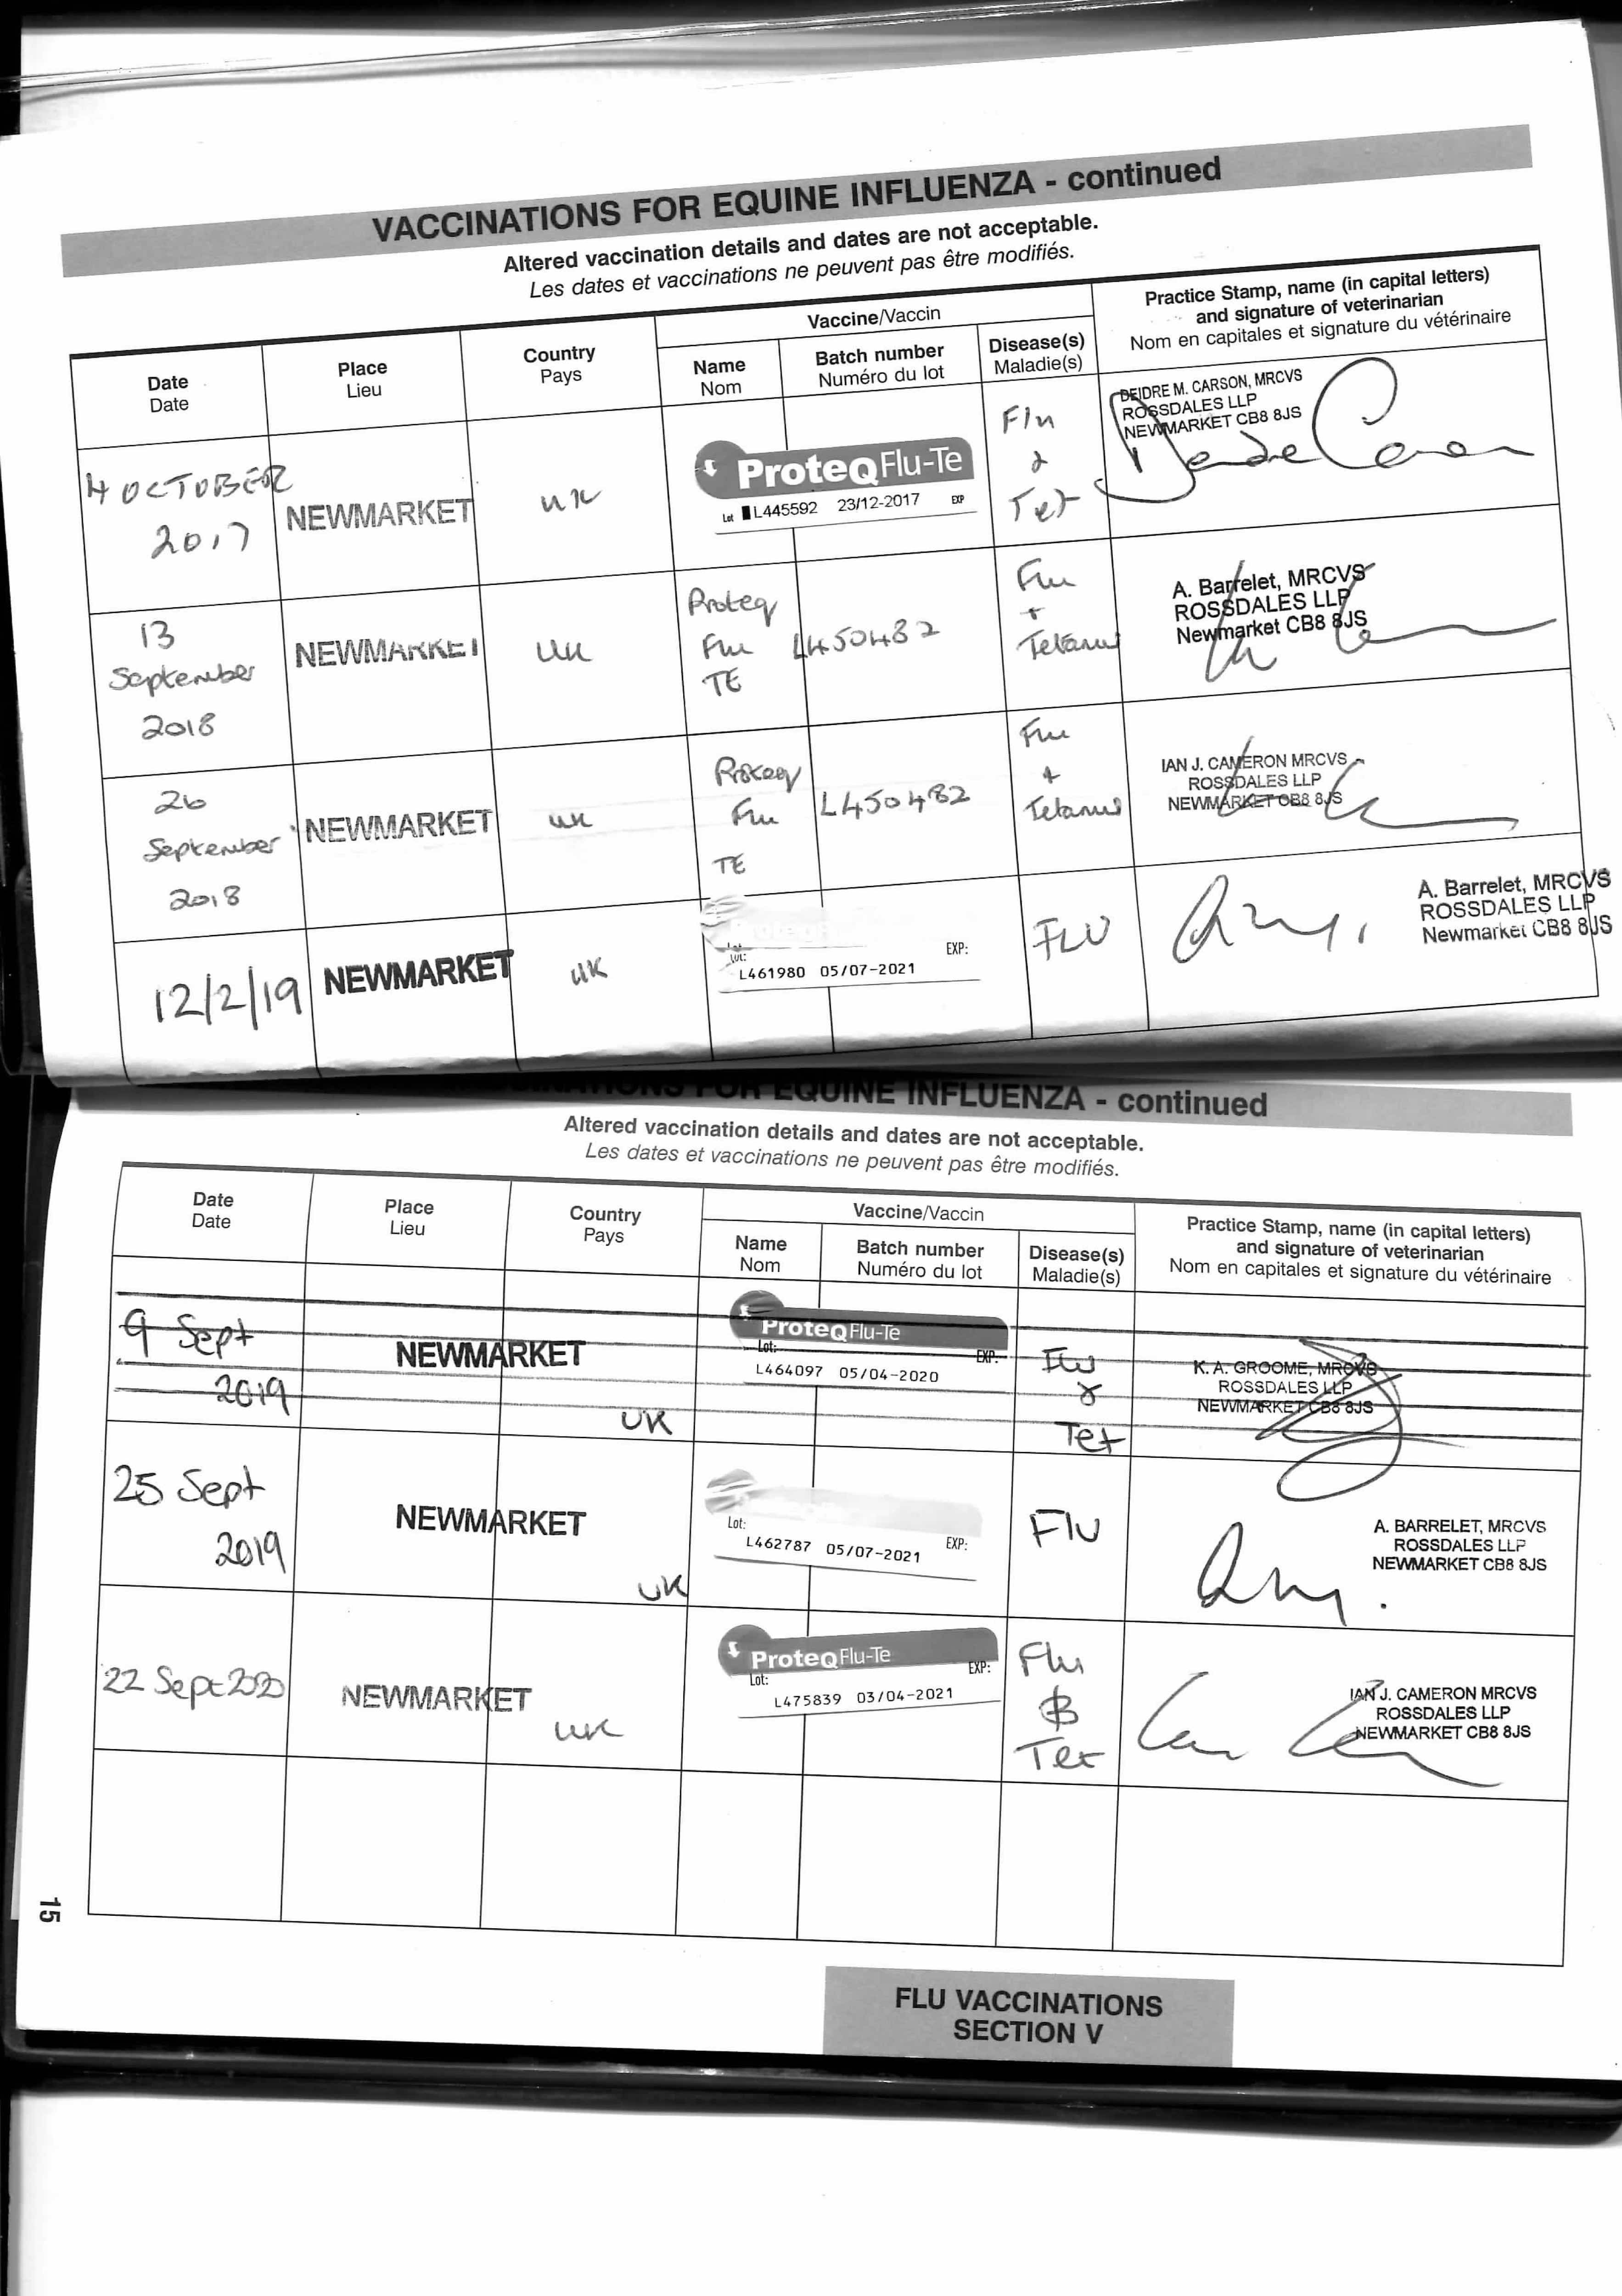 VACCINATIONS FOR EQUINE INFLUENZA - continued
Altered vaccination details and dates are not acceptable.
Les dates et vaccinations ne peuvent pas être modifiés.
Date
Date
Place
Lieu
Country
Pays
Vaccine/Vaccin
Name
Nom
Batch number
Numéro du lot
Disease(s)
Maladie(s)
Practice Stamp, name (in capital letters)
and signature of veterinarian
Nom en capitales et signature du vétérinaire
4 OCTOBER
2017
NEWMARKET
UK
ProteqFlu-Te
Lot L445592 23/12-2017 EXP
Flu
&
Tet
DEIDRE M. CARSON, MRCVS
ROSSDALES LLP
NEWMARKET CB8 8JS
13
September
2018
NEWMARKET
UK
Proteq
Flu
TE
L450482
Flu
+
Tetanus
A. Barrelet, MRCVS
ROSSDALES LLP
Newmarket CB8 8JS
26
September
2018
NEWMARKET
UK
Proteq
Flu
TE
L450482
Flu
+
Tetanus
IAN J. CAMERON MRCVS
ROSSDALES LLP
NEWMARKET CB8 8JS
12/2/19
NEWMARKET
UK
Lot: EXP:
L461980 05/07-2021
FLU
A. Barrelet, MRCVS
ROSSDALES LLP
Newmarket CB8 8JS
FOR EQUINE INFLUENZA - continued
Altered vaccination details and dates are not acceptable.
Les dates et vaccinations ne peuvent pas être modifiés.
Date
Date
Place
Lieu
Country
Pays
Vaccine/Vaccin
Name
Nom
Batch number
Numéro du lot
Disease(s)
Maladie(s)
Practice Stamp, name (in capital letters)
and signature of veterinarian
Nom en capitales et signature du vétérinaire
9 Sept
2019
NEWMARKET
UK
ProteqFlu-Te
Lot: EXP:
L464097 05/04-2020
Flu
&
Tet
K. A. GROOME, MRCVS
ROSSDALES LLP
NEWMARKET CB8 8JS
25 Sept
2019
NEWMARKET
UK
Lot: EXP:
L462787 05/07-2021
Flu
A. BARRELET, MRCVS
ROSSDALES LLP
NEWMARKET CB8 8JS
22 Sept 2020
NEWMARKET
UK
ProteqFlu-Te
Lot: EXP:
L475839 03/04-2021
Flu
&
Tet
IAN J. CAMERON MRCVS
ROSSDALES LLP
NEWMARKET CB8 8JS
15
FLU VACCINATIONS
SECTION V